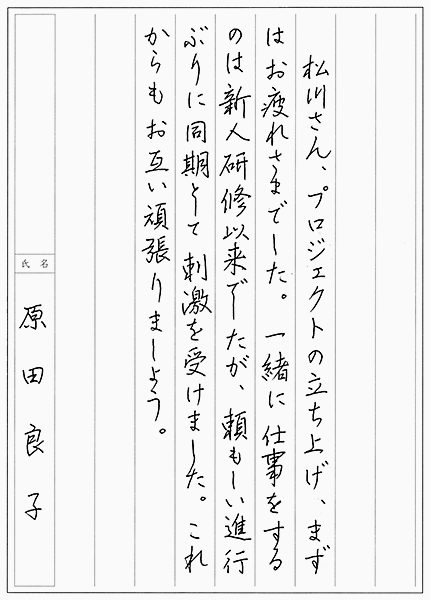 松川さん、プロジェクトの立ち上げ、まず
はお疲れさまでした。一緒に仕事をする
のは新人研修以来でしたが、頼もしい進行
ぶりに同期として刺激を受けました。これ
からもお互い頑張りましょう。
氏名
原田良子